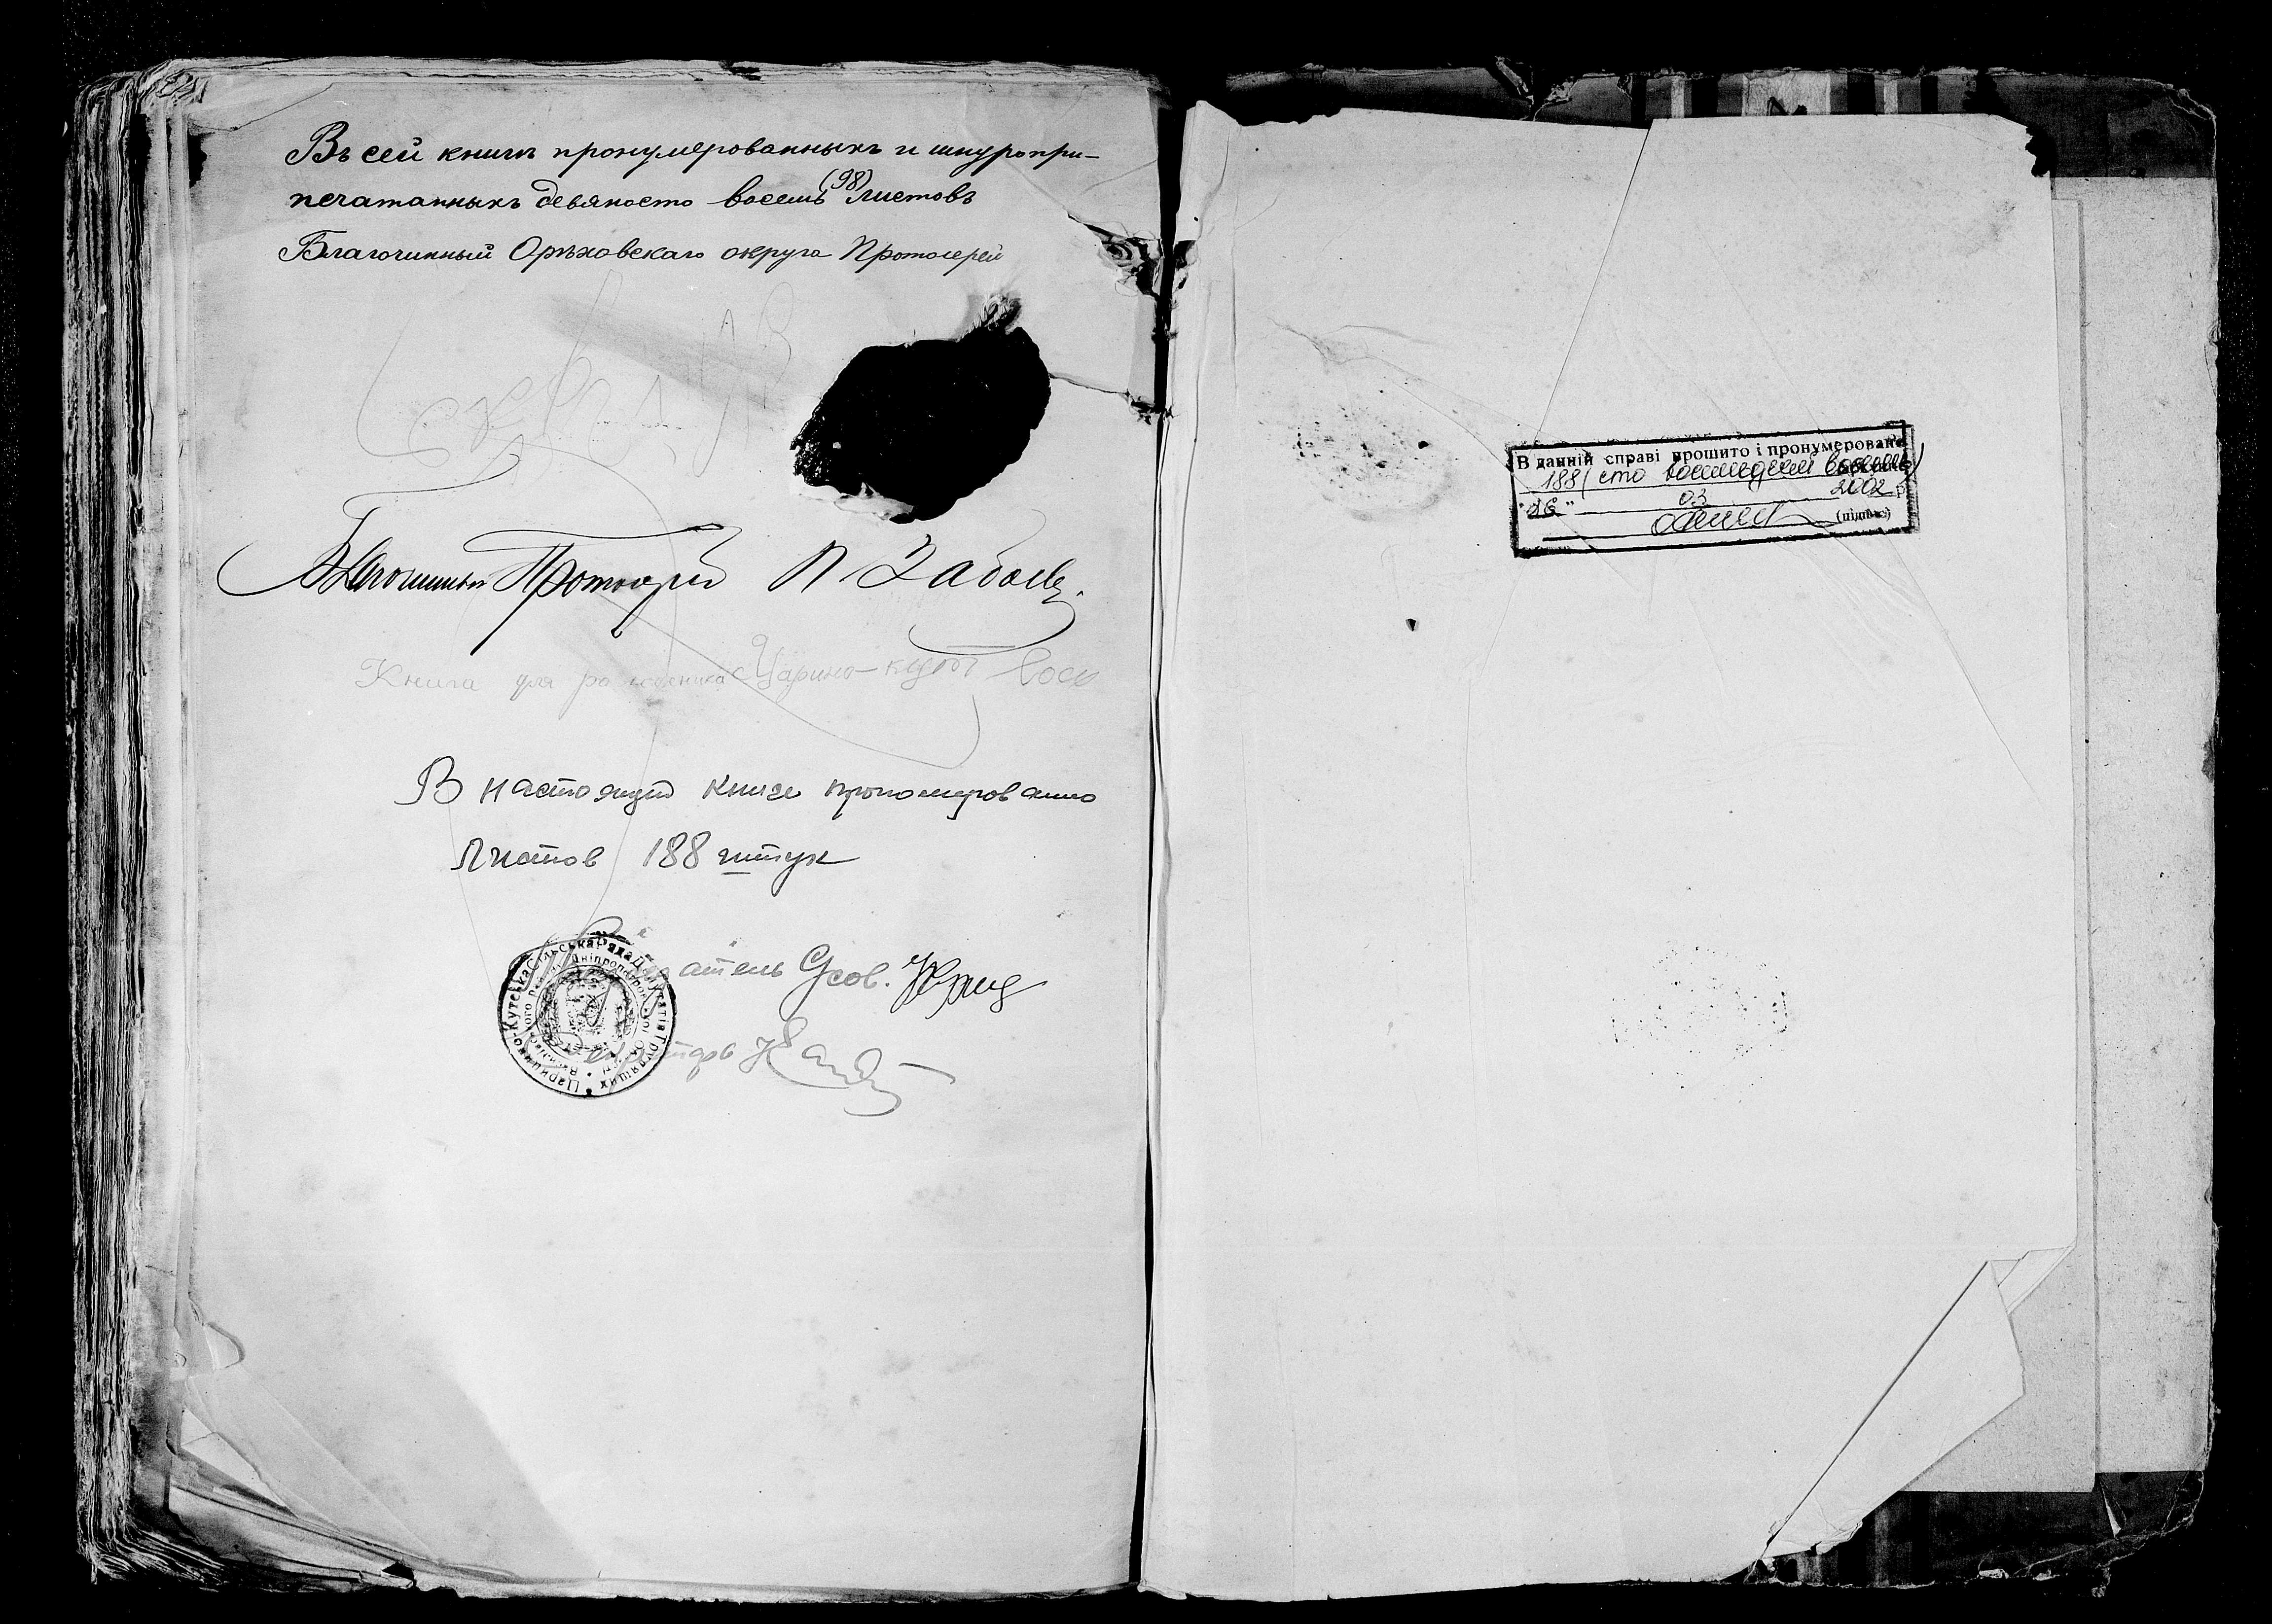 Въ сей книгѣ пронумерованныхъ и шнуропри-
печатанныхъ девяносто восемь (98) листовъ
Благочинный Орѣховскаго округа Протоіерей
Благочинный Протоіерей П Забаев
Книга для Царико-кут
В настоящей книге прономерованно
Листов 188 штук
Царицино-Кутська Сільська Рада Депутатів Трудящих
Дніпропетровської
Усов.
В данній справі прошито і пронумеровано
188 (сто восемдесят восемь)
"26" 03 2002 р
(підпис)